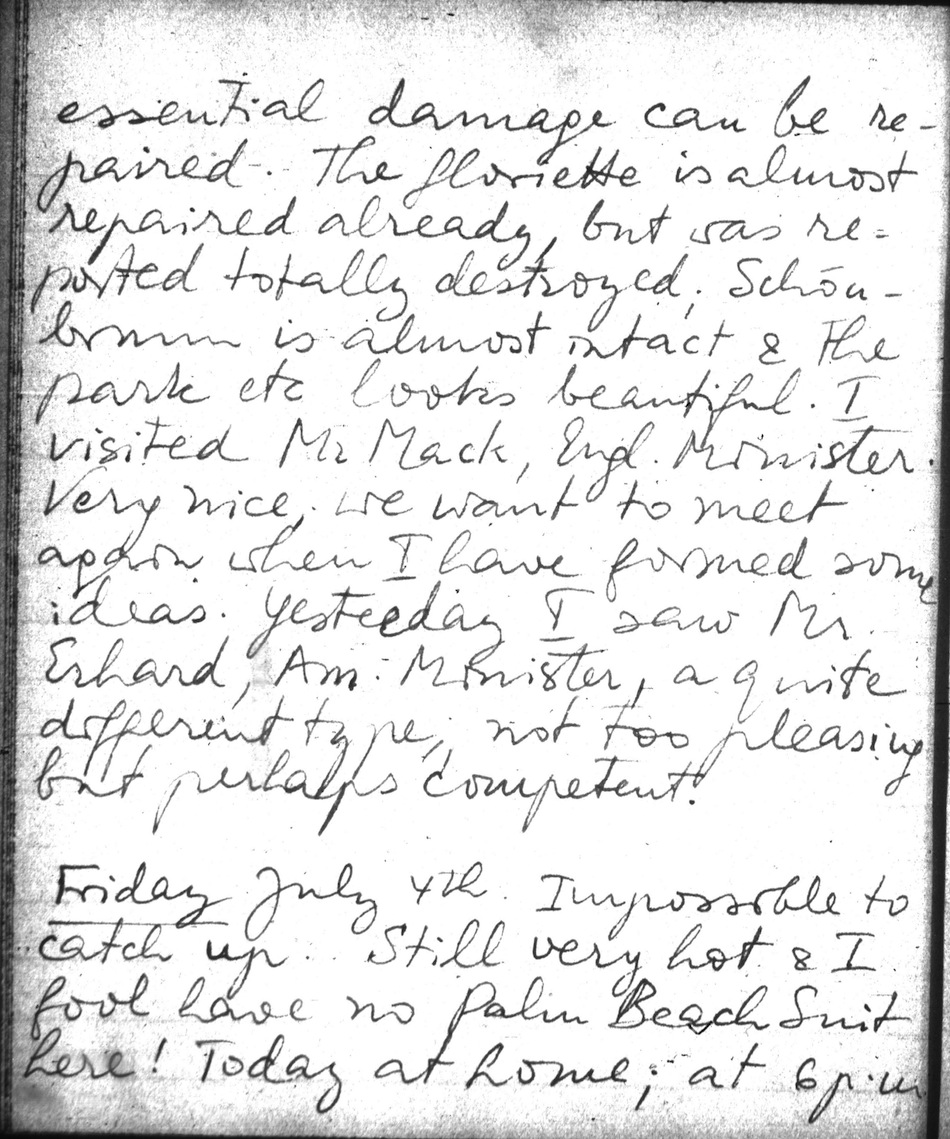 essential damage can be re-
paired. The Gloriette is almost
repaired already, but was re=
ported totally destroyed; Schön-
brunn is almost intact & the
park etc looks beautiful. I
visited Mr Mack, Engl. Minister.
Very nice, we want to meet
again when I have formed some
ideas. Yesterday I saw Mr.
Erhard, Am. Minister, a quite
different type, not too pleasing
but perhaps competent.
Friday July 4th. Impossible to
catch up. Still very hot & I
fool have no Palm Beach Suit
here! Today at home; at 6 p.m